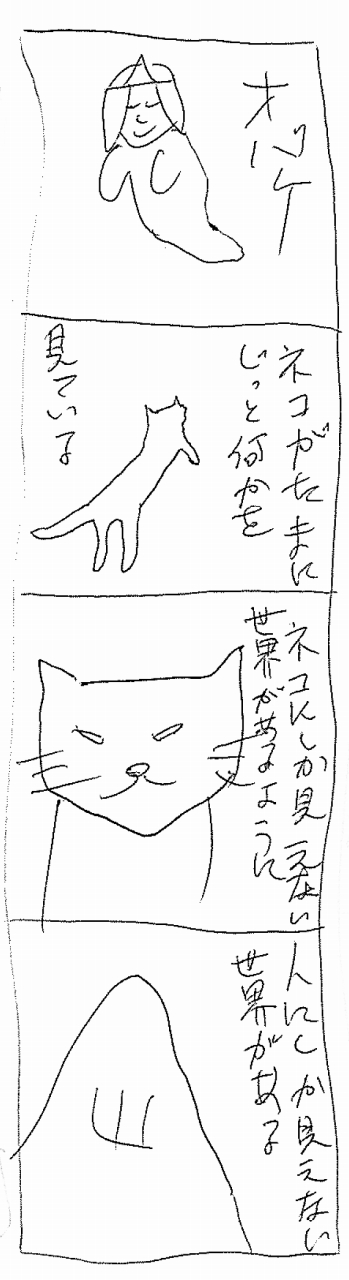 オバケ
ネコがたまに
じっと何かを
見ている
ネコにしか見えない
世界があるように
人にしか見えない
世界がある
山